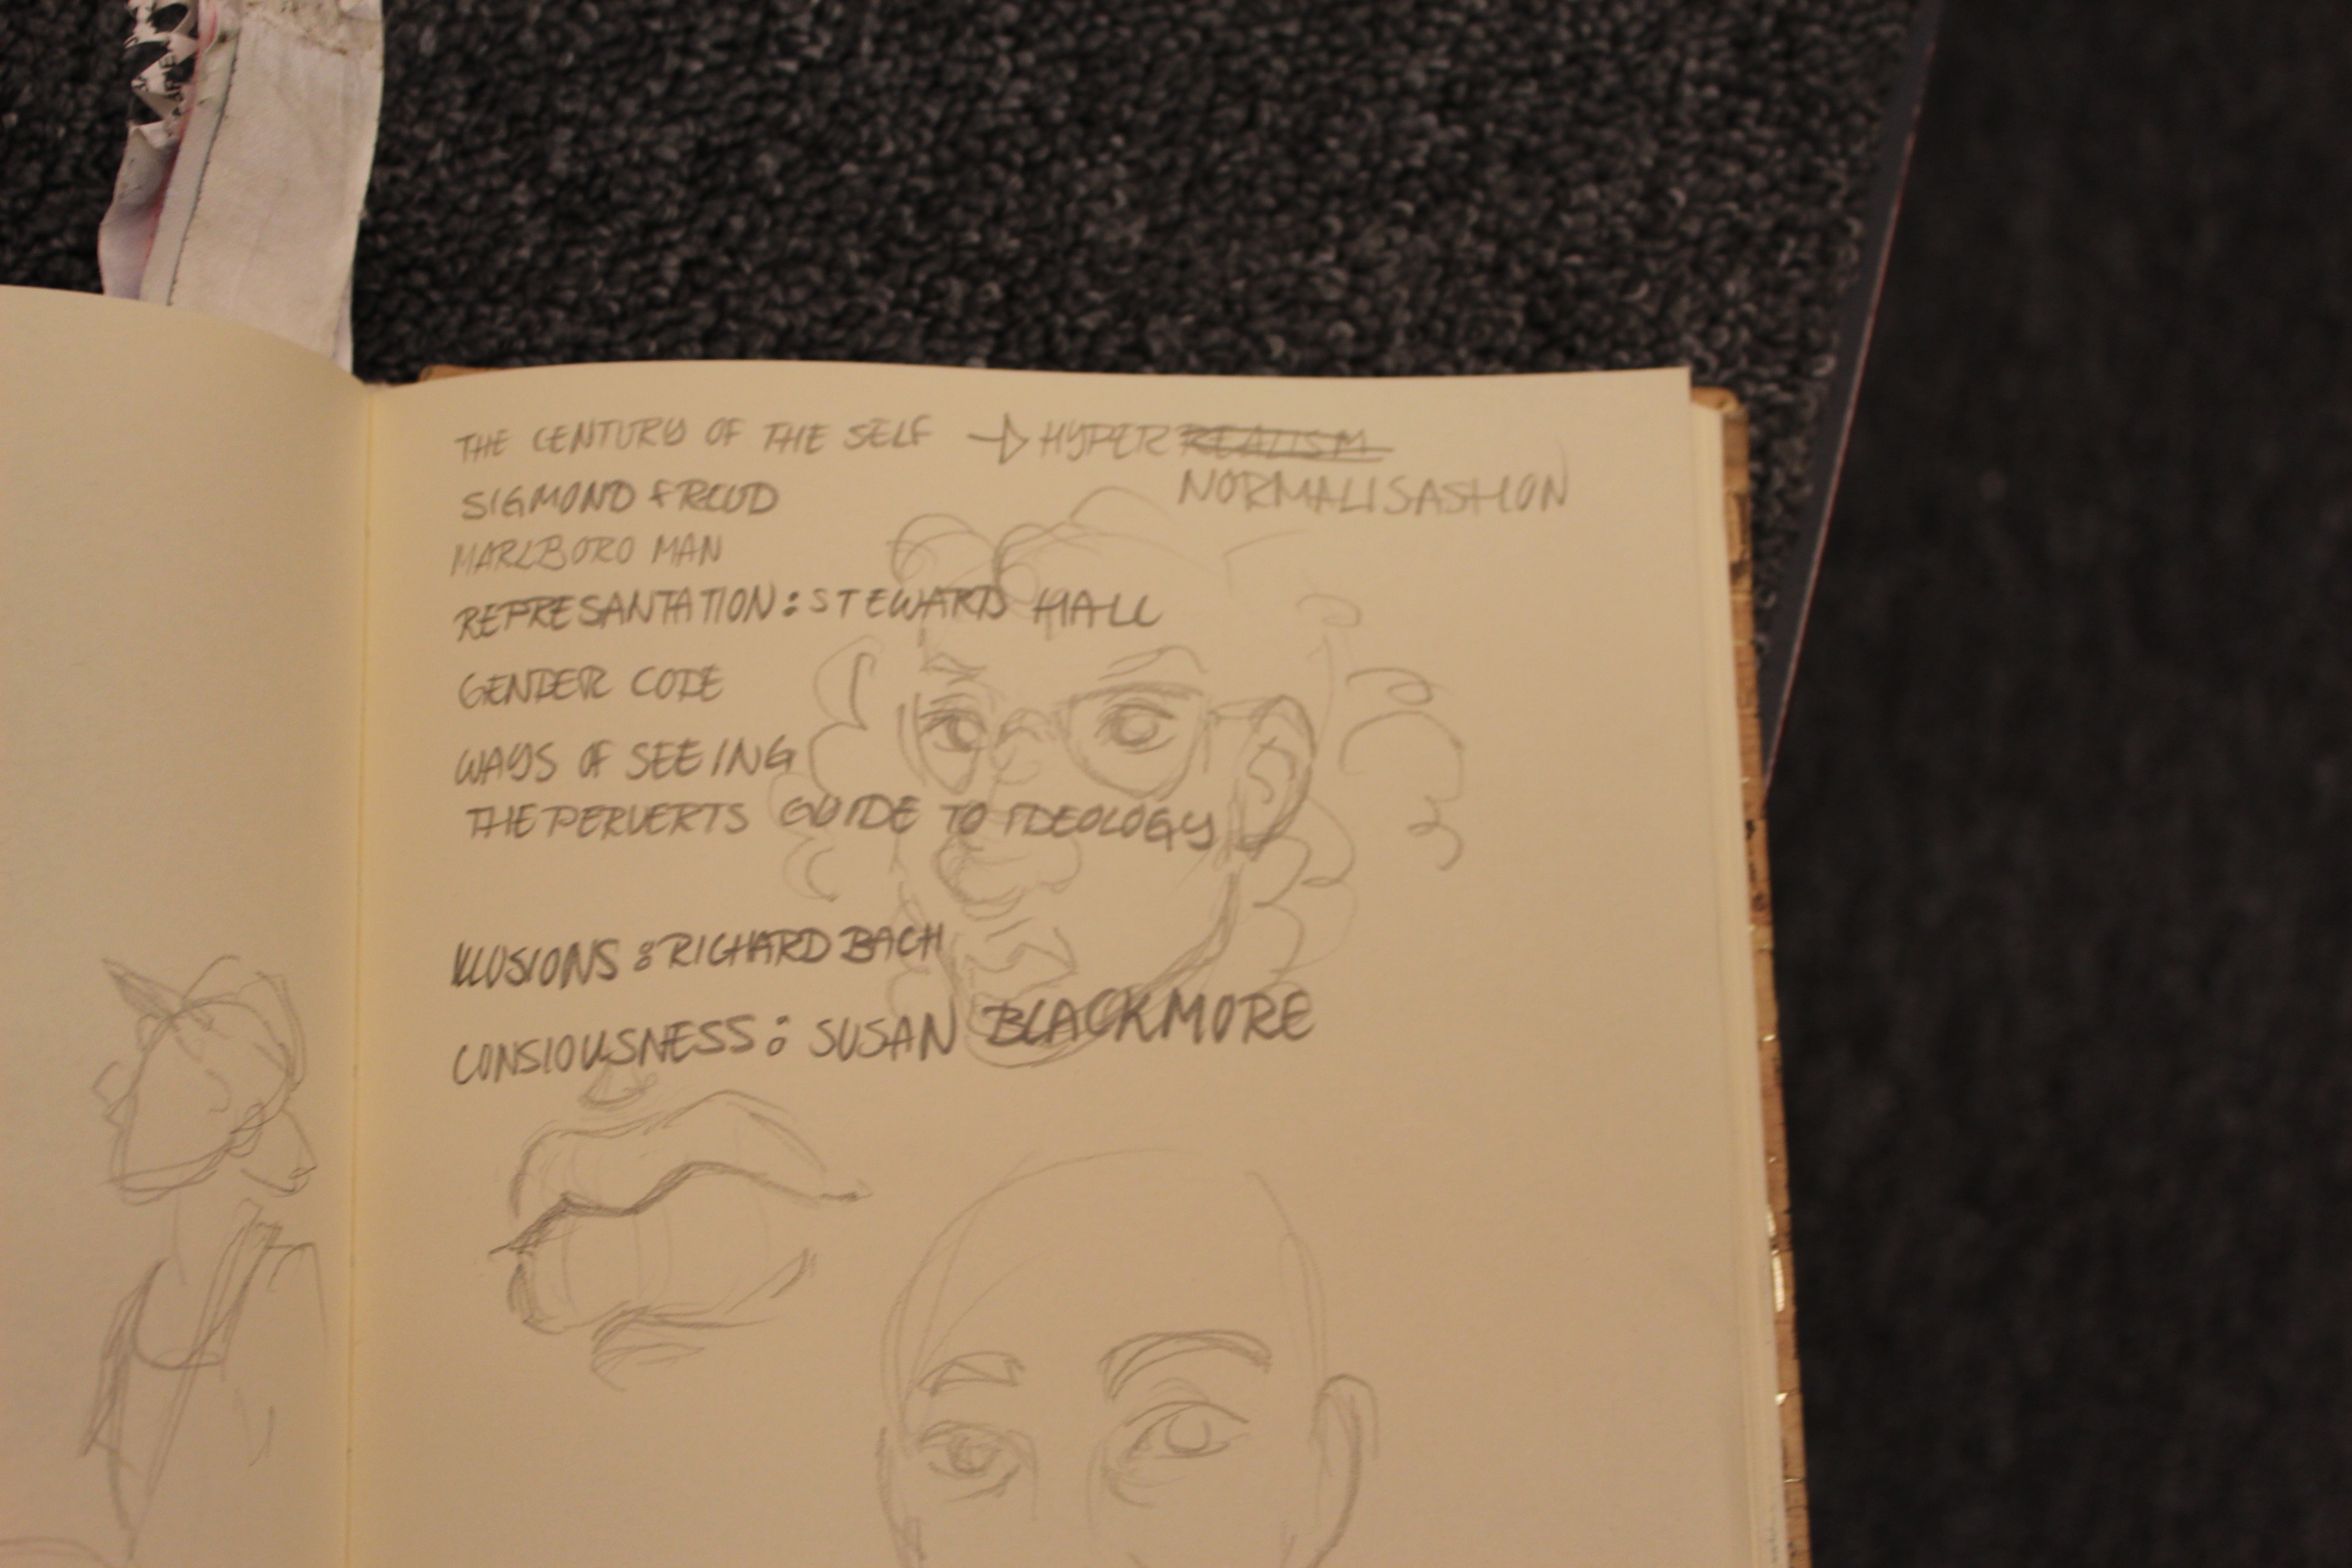 THE CENTURY OF THE SELF → HYPER REALISM
NORMALISASHION
SIGMOND FREUD
MARLBORO MAN
REPRESANTATION: STEWARD HALL
GENDER CODE
WAYS OF SEEING
THE PERVERTS GUIDE TO IDEOLOGY
ILLUSIONS: RICHARD BACH
CONSIOUSNESS: SUSAN BLACKMORE